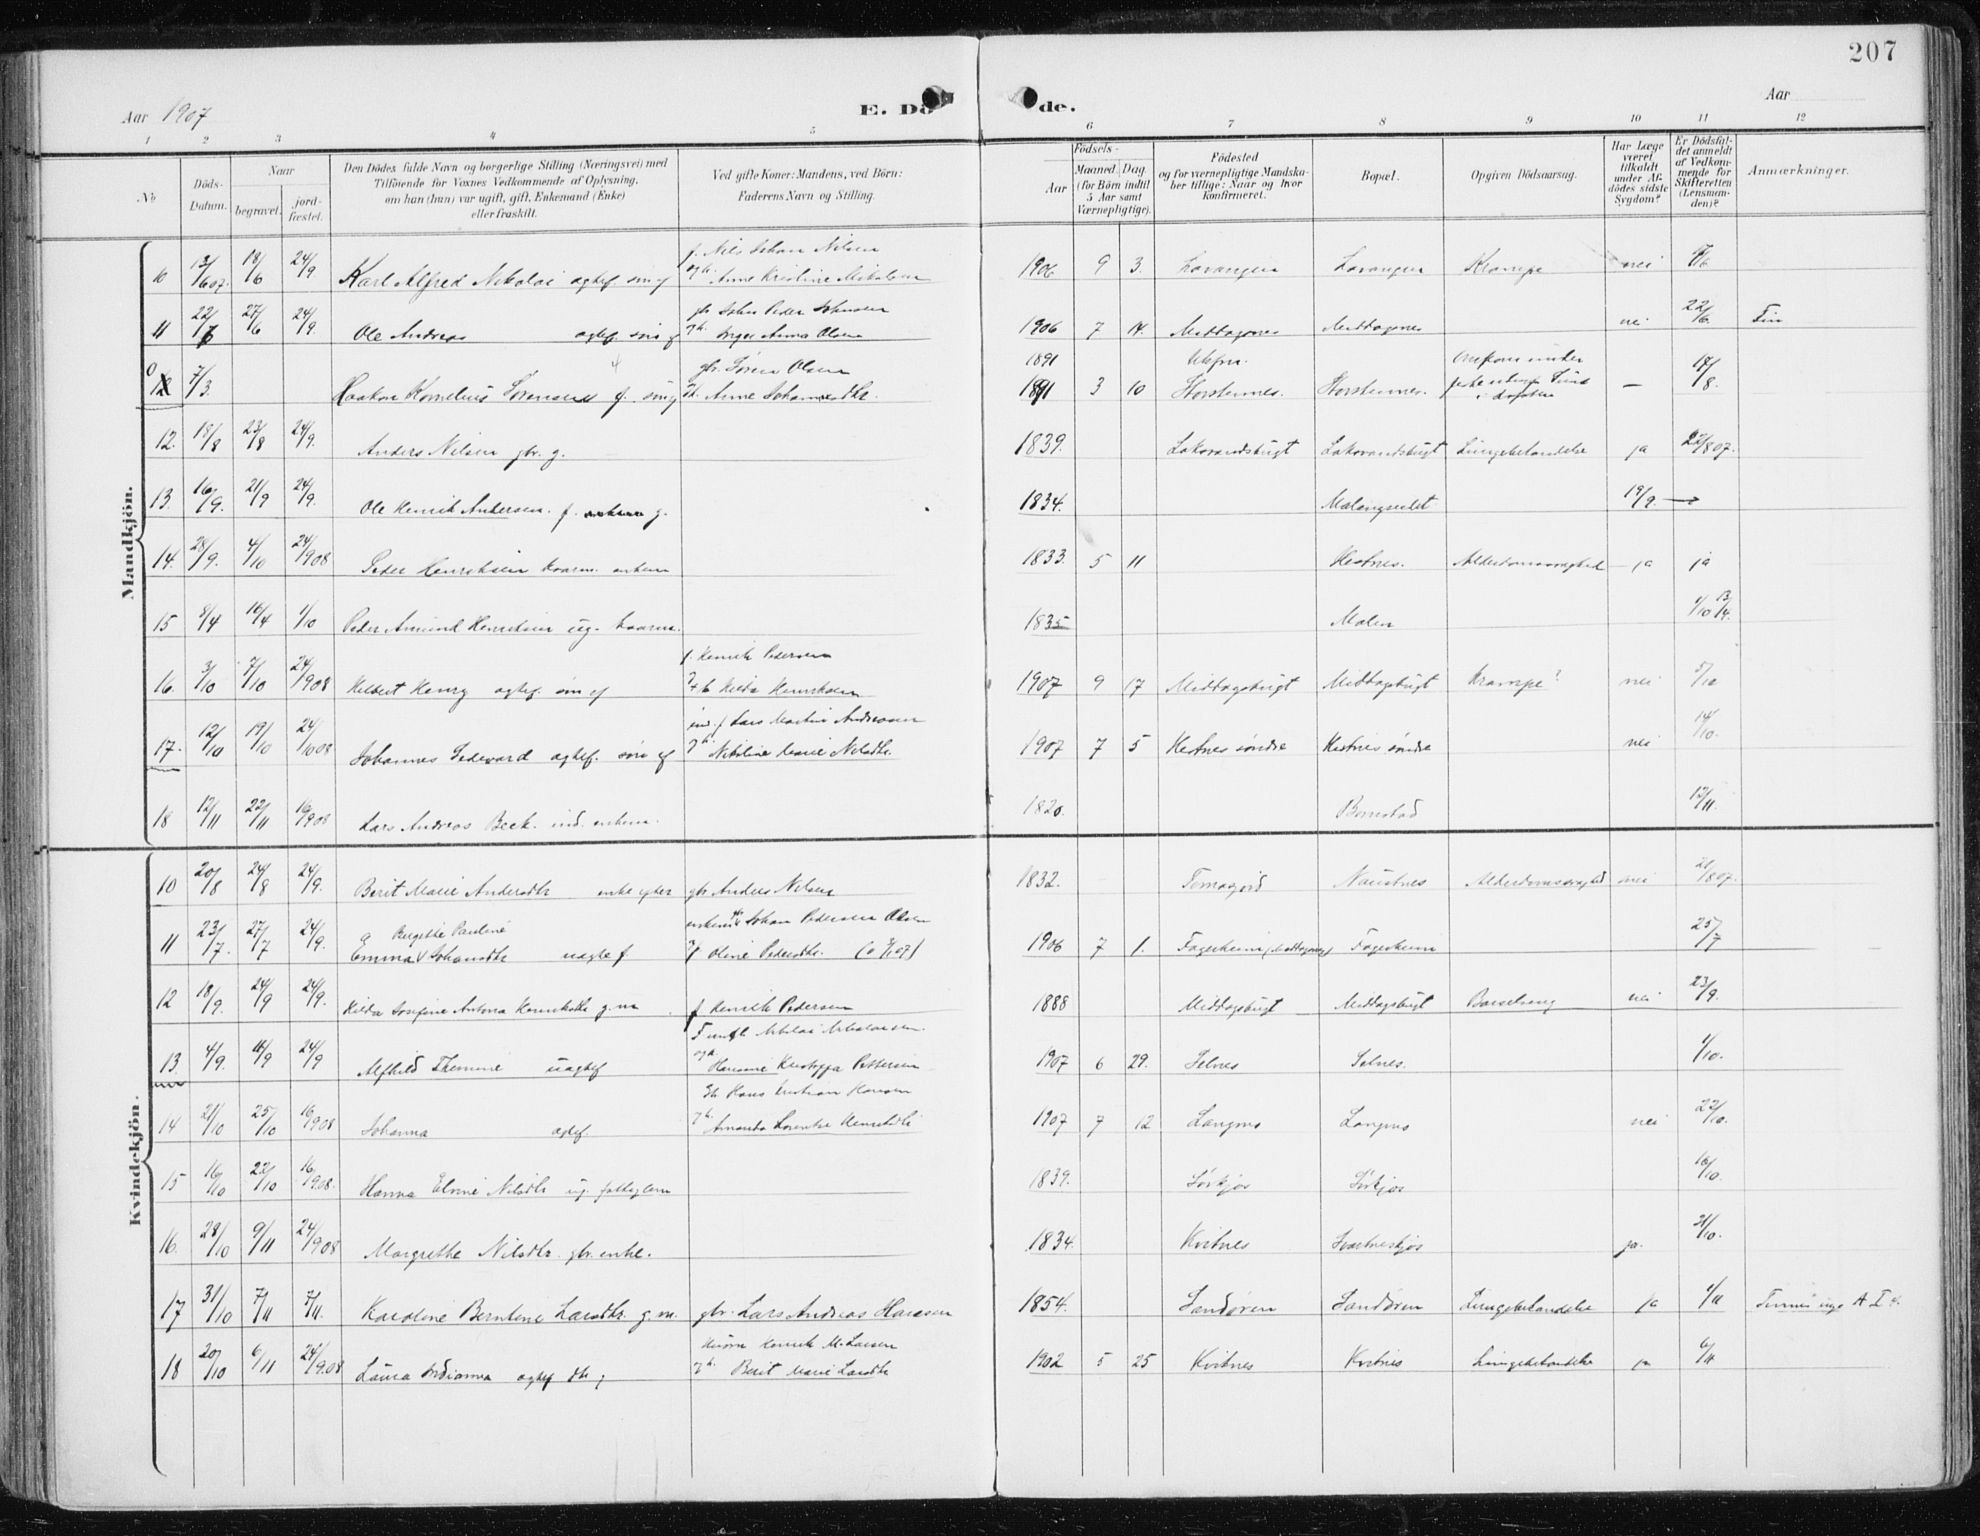 207
Aar 1907
E. Dö de.
Aar
1 2 3 4 5 6 7 8 9 10 11 12
No
Döds-Datum.
Naar
begravet.
jord-fæstet.
Den Dödes fulde Navn og borgerlige Stilling (Næringsvei) med
Tilföiende for Voxnes Vedkommende af Oplysning,
om han (hun) var ugift, gift, Enkemand (Enke)
eller fraskilt.
Ved gifte Koner: Mandens, ved Börn:
Faderens Navn og Stilling.
Födsels-
Aar
Maaned. Dag.
(for Börn indtil
5 Aar samt
Værnepligtige).
Födested
og for værnepligtige Mandska-
ber tillige: Naar og hvor
konfirmeret.
Bopæl.
Opgiven Dödsaarsag.
Har Læge
været
tilkaldt
under Af-
dödes sidste
Sygdom?
Er Dödsfal-
det anmeldt
af Vedkom-
mende for
Skifteretten
(Lensman-
den)?
Anmærkninger.
Mandkjön.
10 13/6 07. 18/6 24/9 Karl Alfred Nikolai ægtef. søn af f. Nils Johan Nilsen og h. Anne Kristine Mikalsen 1906 9 3. Lavangen Lavangen Krampe nei
11 22/6 27/6 24/9 Ole Andreas ægtef. søn af gbr. John Peder Johnsen og h. Inger Anna Olsen 1906 7 14. Middagsnes Middagsnes nei 22/6 Fin
7/3 Haakon Kornelius Sørensen f. søn af gbr. Søren Olsen og h. Anne Johannesdtr. 1891 1891 3 10 Storstennes. Storstennes. — 17/8.
12. 18/8 23/8 24/9. Anders Nilsen gbr. g. 1839. Laksvandsbugt Laksvandsbugt Lungebetændelse ja 22/8 07.
13. 16/9. 21/9 24/9. Ole Henrik Andersen. f. g. 1834. Malangseidet 19/9
14. 28/9. 4/10 24/9 08 Peder Henriksen kaarm. enkem 1833. 5 11 Hestnes. Alderdomssvaghed ja ja
15 8/4 16/4 1/10 Peder Amund Henriksen ug. kaarm. 1835 Malen 1/10 13/4.
16. 3/10 7/10 24/9 08 Hilbert Henry ægtef. søn af f. Henrik Pedersen og h Hilda Henriksen 1907 9 17 Middagsbugt Middagsbugt Krampe? nei 5/10
17. 12/10 19/10 24/10 08 Johannes Sedevard ægtef. søn af ind. f Lars Martin Andreasen og h. Nikoline Marie Nilsdtr. 1907 7 5 Hestnes søndre Hestnes søndre nei 14/10.
18 12/11 22/11 16/9 08 Lars Andreas Beck. ind. enkem. 1820. Bomstad 13/11.
Kvindekjön.
10 20/8 24/8 24/9. Berit Marie Andersdtr enke efter gbr Anders Nilsen 1832. Tomasjord Naustnes Alderdomssvaghed nei 21/8 07.
11 23/7. 27/7 24/9. Emma Bergithe Pauline Johansdtr uægtef enkem Johan Pedersen Olsen og Oline Pedersdtr. 1906 7 1. Fagerheim Fagerheim 25/7
12 18/9. 24/9 24/9. Hilda Josefine Antona Henriksdtr g.m. f Henrik Pedersen 1888 Middagsbugt Middagsbugt Barselseng nei 23/9.
13. 4/9. 14/9 24/9 Alfhild Themine uægtef Nikolai Nikolaisen. og Hansine Kristofa Pettersen 1907 6 29. Selnes Selnes. 1/10.
14 21/10 25/10 16/9 08 Johanna ægtef. Hans Kristian Hansen og h. Amanda Lorentse Henriksdtr 1907 7 12 Langnes Langnes nei 22/10.
15 16/10 22/10 16/9 08. Hanna Elvine Nilsdtr ug. fattiglem 1839. Sørkjos Sørkjos 16/10.
16. 28/10 9/11 24/9 08 Margrethe Nilsdtr. gbr. enke. 1834. Kvitnes Svartneskjos ja. 31/10.
17 31/10 7/11 7/11. Karoline Berntine Larsdtr. g.m. gbr. Lars Andreas Hansen 1854. Sandøren Sandøren Lungebetændelse ja 1/11
18 20/10 6/11 24/9 08 Laura Indianna ægtef dtr af Henrik M. Larsen og h. Berit Marie Larsdtr 1902 5 25 Kvitnes Kvitnes Lungebetændelse ja 6/11